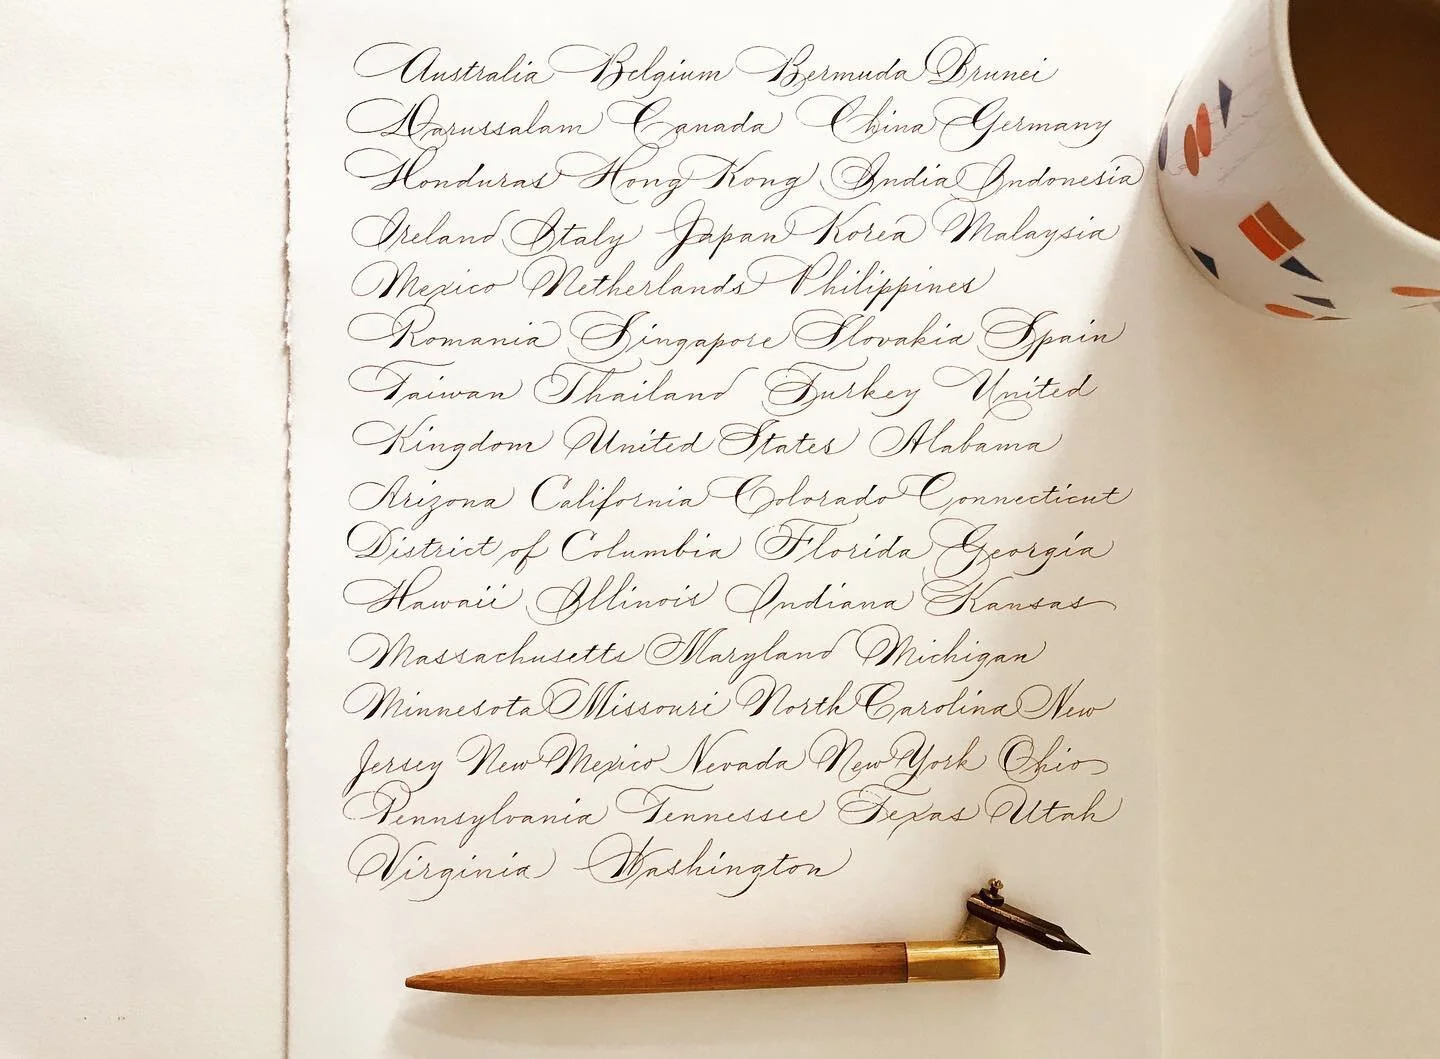 Australia Belgium Bermuda Brunei
Darussalam Canada China Germany
Honduras Hong Kong India Indonesia
Ireland Italy Japan Korea Malaysia
Mexico Netherlands Philippines
Romania Singapore Slovakia Spain
Taiwan Thailand Turkey United
Kingdom United States Alabama
Arizona California Colorado Connecticut
District of Columbia Florida Georgia
Hawaii Illinois Indiana Kansas
Massachusetts Maryland Michigan
Minnesota Missouri North Carolina New
Jersey New Mexico Nevada New York Ohio
Pennsylvania Tennessee Texas Utah
Virginia Washington